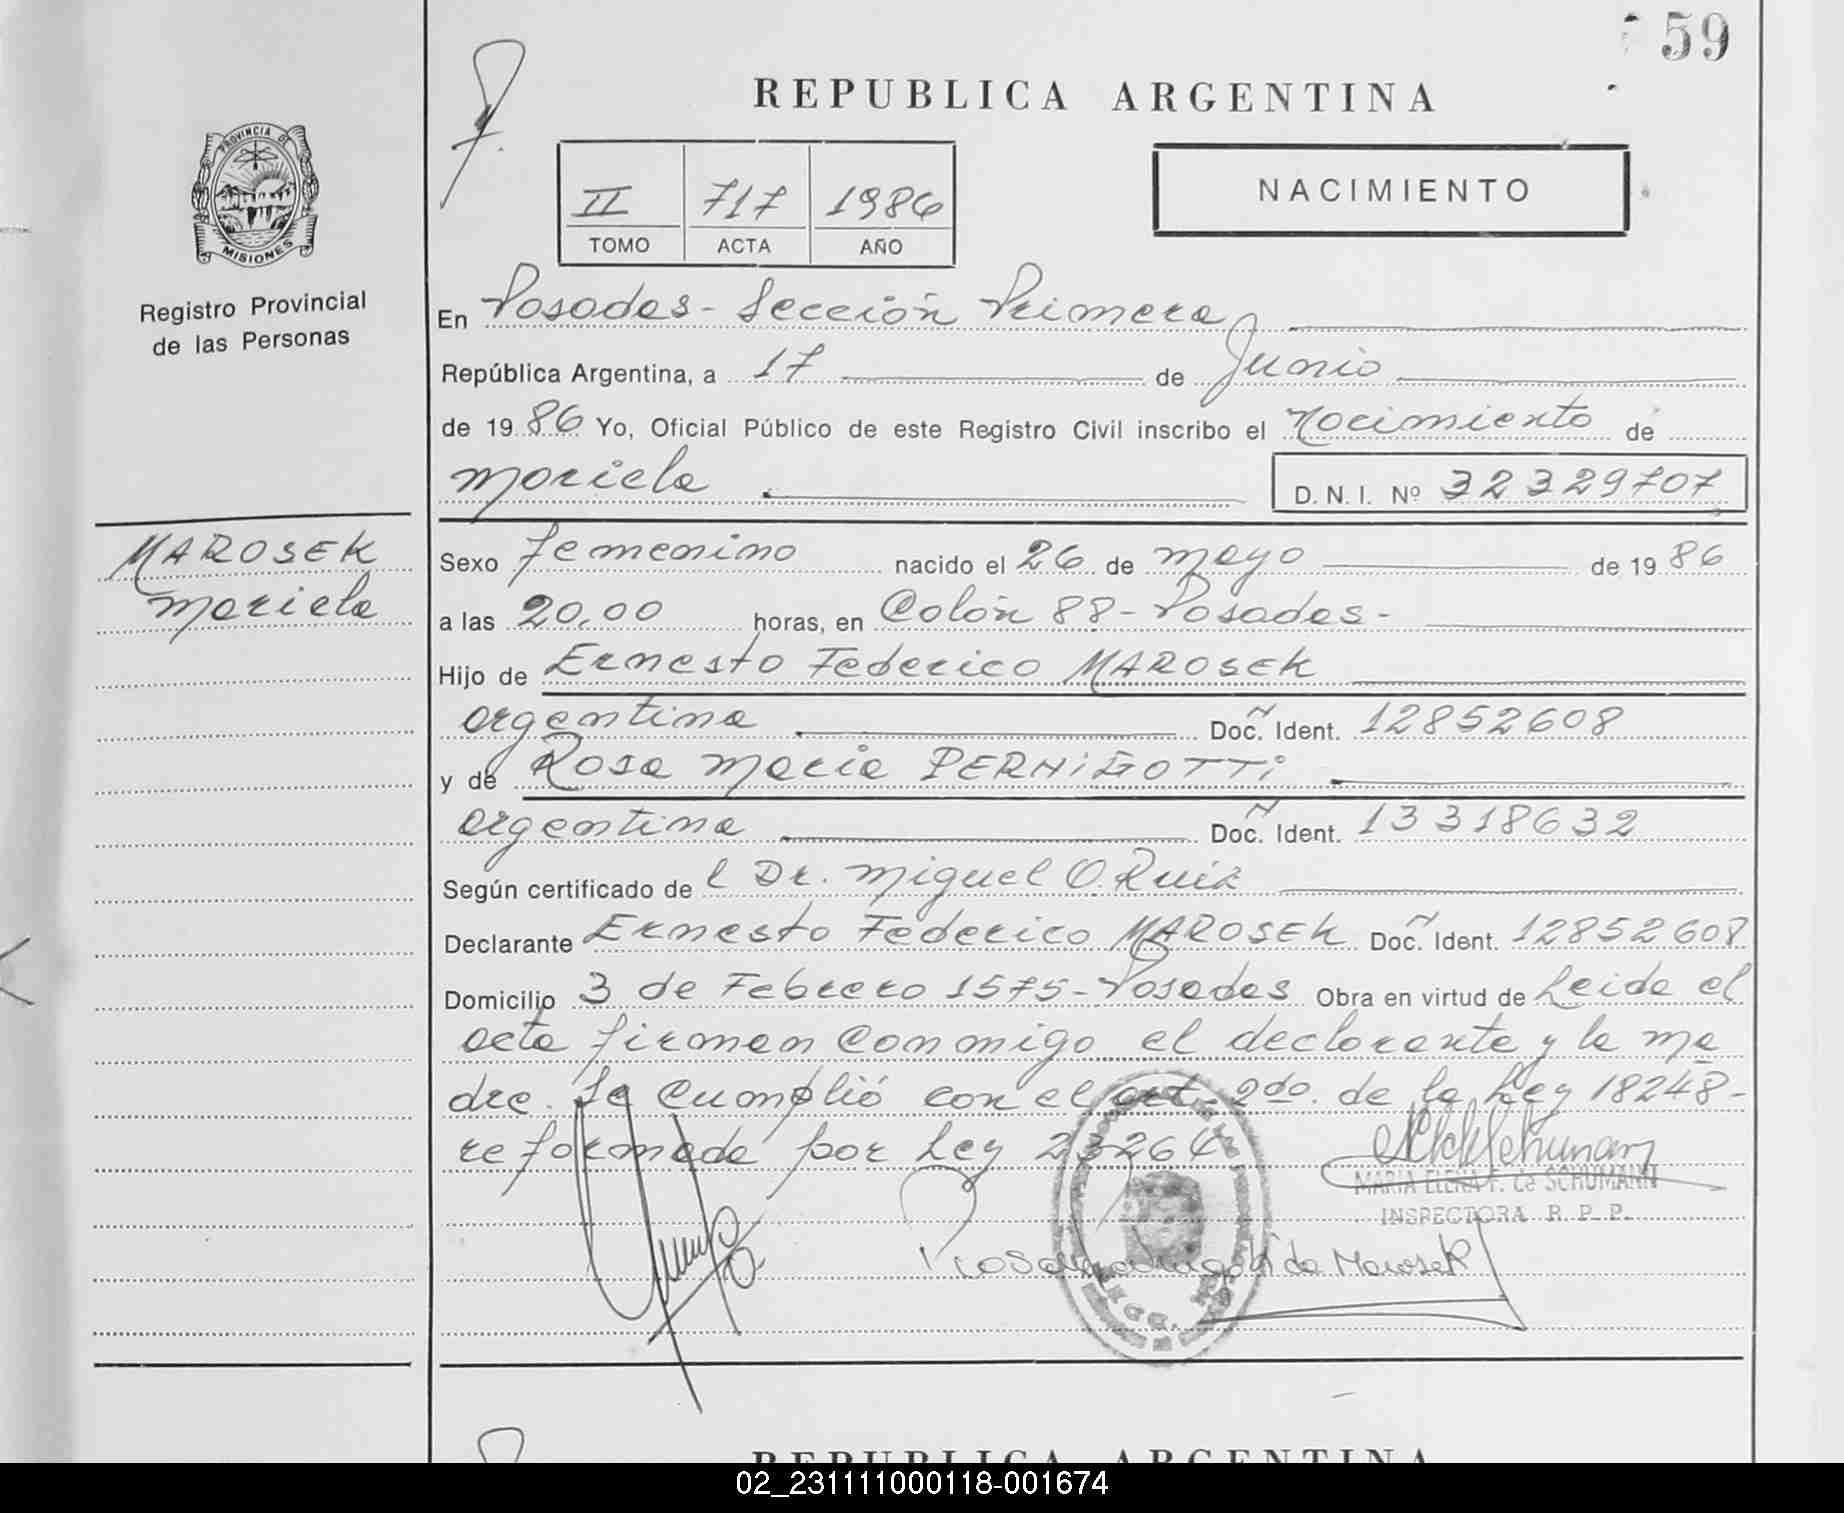 59
REPUBLICA ARGENTINA
PROVINCIA DE
MISIONES
Registro Provincial
de las Personas
II 717 1986
TOMO ACTA AÑO
NACIMIENTO
En Posadas - Sección Primera
República Argentina, a 17 de Junio
de 19 86 Yo, Oficial Público de este Registro Civil inscribo el Nacimiento de
Mariela
D. N. I. Nº 32329707
MAROSEK
Mariela
Sexo Femenino nacido el 26 de Mayo de 19 86
a las 20,00 horas, en Colón 88 - Posadas -
Hijo de Ernesto Federico MAROSEK
argentina Doc. Ident. 12852608
y de Rosa Maria PERNIGOTTI
argentina Doc. Ident. 13318632
Según certificado de l Dr. Miguel O. Ruiz
Declarante Ernesto Federico MAROSEK Doc. Ident. 12852608
Domicilio 3 de Febrero 1575 - Posadas Obra en virtud de Leida el
acta firman conmigo el declarante y la ma
dre. Se cumplió con el art. 2do. de la Ley 18248 -
reformada por Ley 23264
MARIA ELENA F. de SCHUMANN
INSPECTORA R. P. P.
de Marosek
REPUBLICA ARGENTINA
02_231111000118-001674